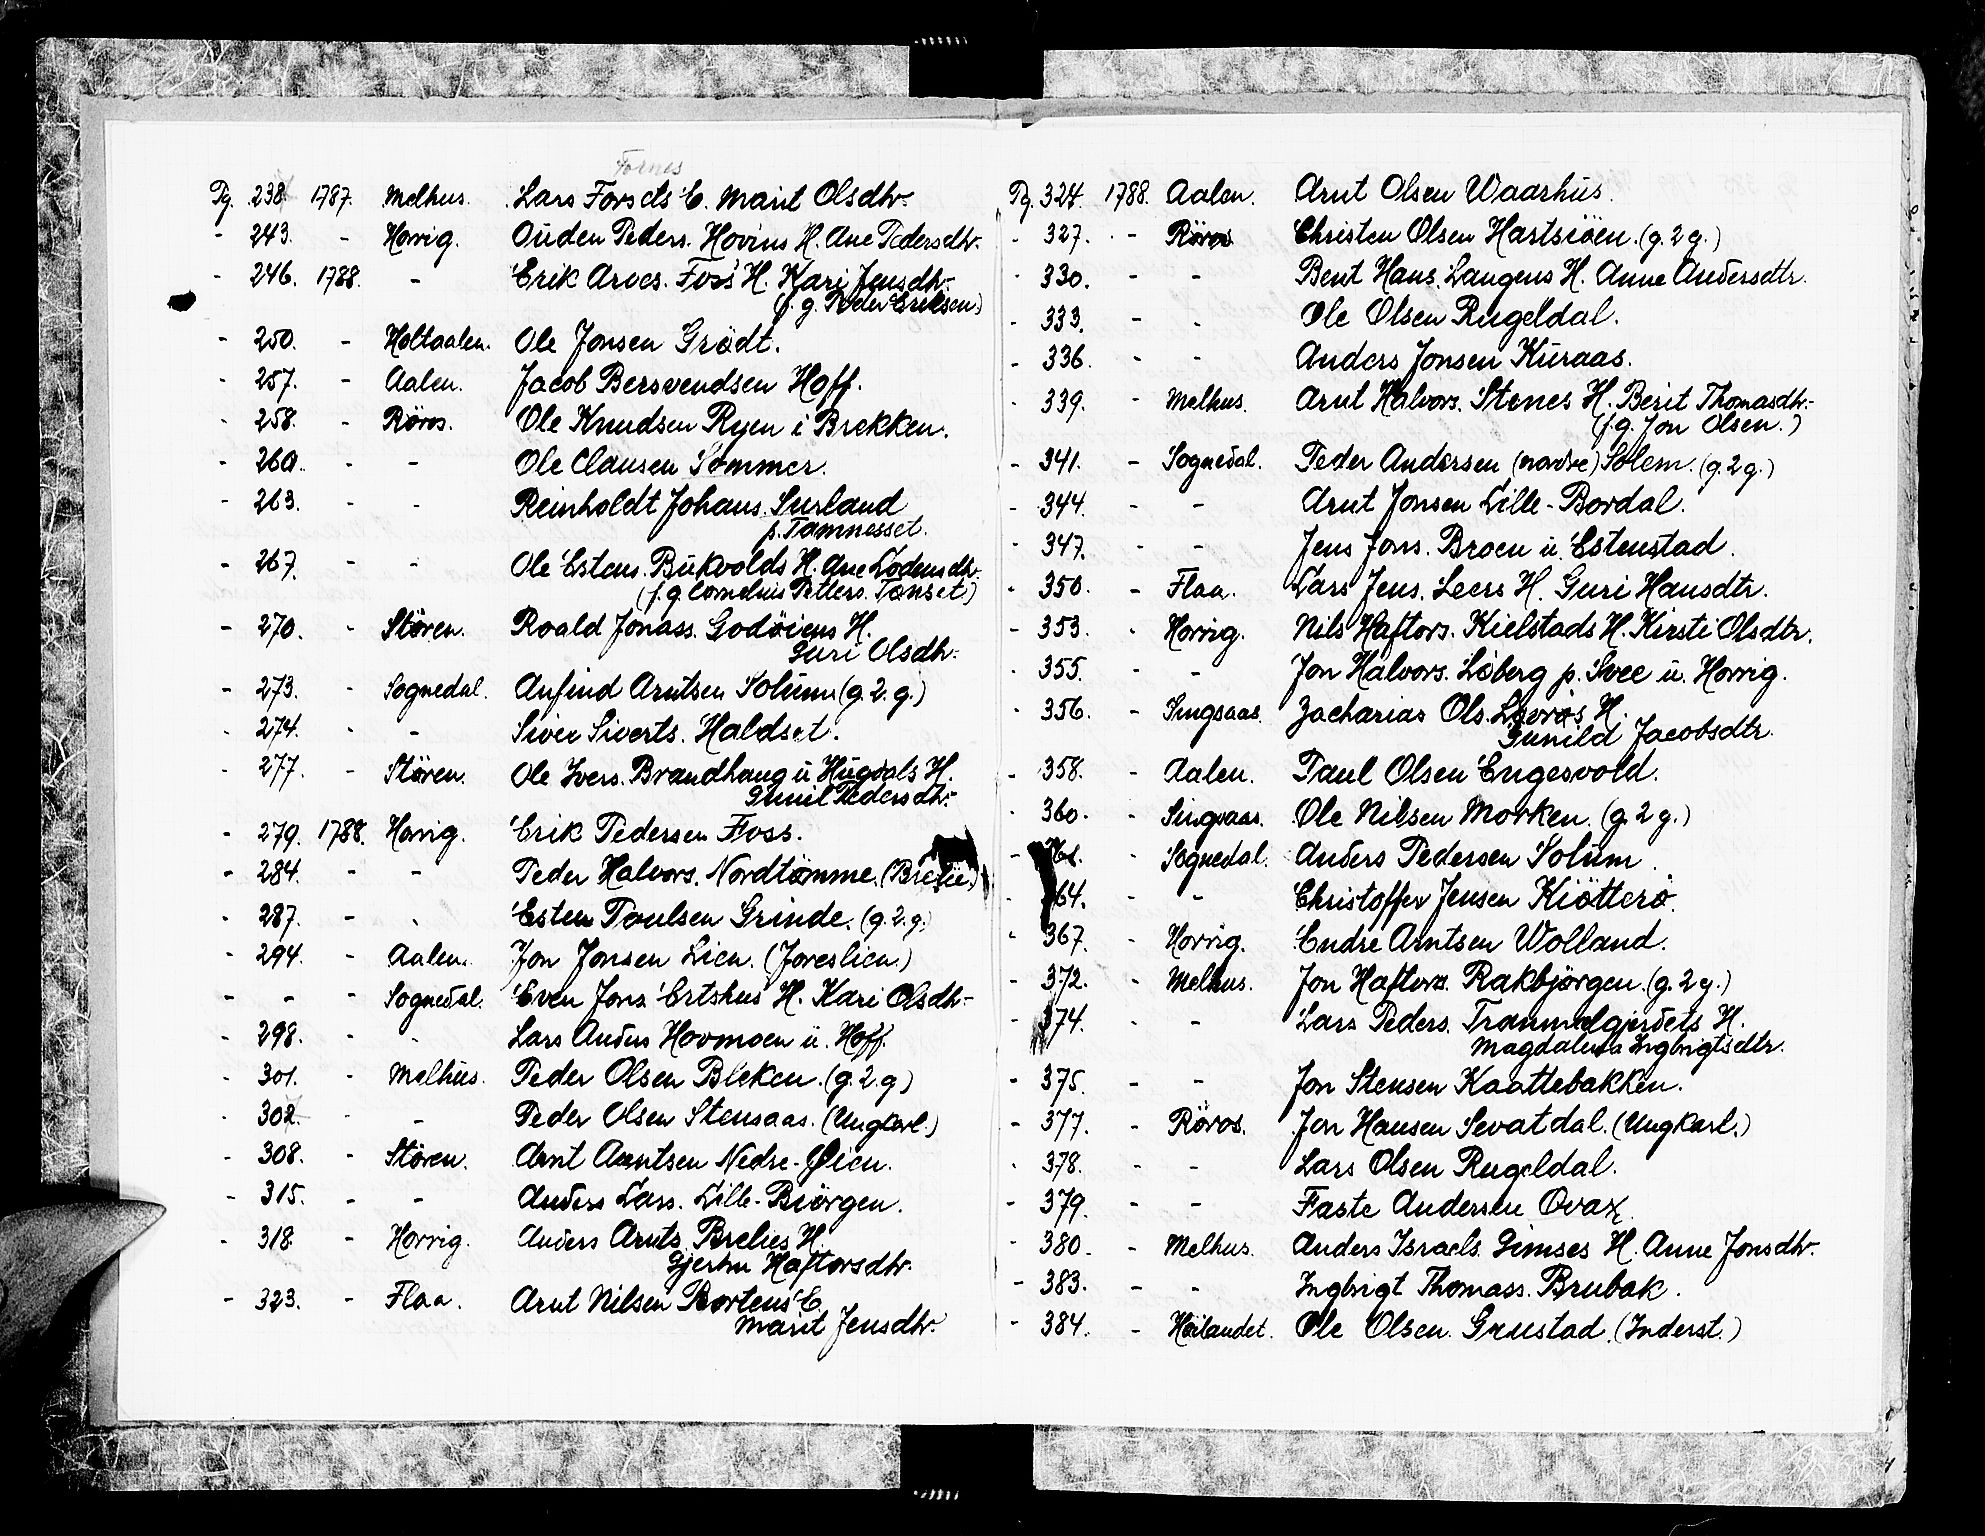 Fornes
Pg. 238. 1787. Melhus. Lars Forsets E. Marit Olsdtr.
- 243. - Horrig. Ouden Peders. Hovins H. Ane Pedersdtr.
- 246. 1788. - Erik Arves. Foss H. Kari Jensdtr.
(f. g. Peder Eriksen)
- 250. - Holtaalen. Ole Jonsen Grødt.
- 257. - Aalen. Jacob Bersvendsen Hoff.
- 258. - Röros. Ole Knudsen Ryen i Brekken.
- 260. - - Ole Clausen Sommer.
- 263. - - Reinholdt Johans. Surland
p. Tamnesset.
- 267. - - Ole Estens. Bukvolds H. Ane Lodensdtr.
(f. g. Cornelius Petters. Tønset)
- 270. - Støren. Roald Jonass. Godøiens H.
Guri Olsdtr.
- 273. - Sognedal. Anfind Arntsen Solum (g. 2. g.)
- 274. - - Siver Siverts. Haldset.
- 277. - Støren. Ole Ivers. Brandhaug u Hugdals H.
Gunil Pedersdtr.
- 279. 1788. Horrig. Erik Pedersen Foss.
- 284. - - Peder Halvors. Nordtømme.
- 287. - - Esten Poulsen Grinde. (g. 2. g.)
- 294. - Aalen. Jon Jonsen Lien. (Joreslien)
- - - Sognedal. Even Jons Ertshus H. Kari Olsdtr.
- 298. - - Lars Anders Hovmoen u. Hoff.
- 301. - Melhus. Peder Olsen Bleken. (g. 2. g)
- 302. - - Peder Olsen Stensaas. (Ungkarl.)
- 308. - Støren. Arnt Arntsen Nedre-Øien.
- 315. - - Anders Lars. Lille-Biørgen.
- 318. - Horrig. Anders Arnts. Brelies H.
Gjertru Haftorsdtr.
- 323. - Flaa. Arnt Nilsen Bortens E.
Marit Jensdtr.
Pg. 324. 1788. Aalen. Arnt Olsen Waarhus.
- 327. - Röros Christen Olsen Hartsiöen. (g. 2 g.)
- 330. - - Bent Hans. Langens H. Anne Andersdtr.
- 333. - - Ole Olsen Rugeldal.
- 336. - - Anders Jonsen Kuraas.
- 339. - Melhus. Arnt Halvors. Stenes H. Berit Thomasdtr.
(f. g. Jon Olsen.)
- 341. - Sognedal. Peder Andersen (nordre) Solem. (g. 2 g.)
- 344. - - Arnt Jonsen Lille-Bordal.
- 347. - - Jens Jons. Broen u. Estenstad.
- 350. - Flaa. Lars Jens. Leers H. Guri Hansdtr.
- 353. - Horrig. Nils Haftors. Kielstads H. Kirsti Olsdtr.
- 355. - - Jon Halvors. Løberg p. Svee u. Horrig.
- 356. - Singsaas. Zacharias Ols. Løvrøs H.
Gunild Jacobsdtr.
- 358. - Aalen. Paul Olsen Engesvold.
- 360. - Singsaas. Ole Nilsen Morken. (g. 2 g.)
- 361. - Sognedal. Anders Pedersen Solum.
- 364. - - Christoffer Jensen Kiötterö.
- 367. - Horrig. Endre Arntsen Wolland.
- 372. - Melhus. Jon Haftors. Rakbjørgen. (g. 2 g.)
- 374. - - Lars Peders. Trammelgjerdets H.
Magdalena Ingbrigtsdtr.
- 375. - - Jon Stensen Kaattebakken.
- 377. - Röros. Jon Hansen Sevatdal. (Ungkarl.)
- 378. - - Lars Olsen Rugeldal.
- 379. - - Faste Andersen
- 380. - Melhus. Anders Israels. Gimses H. Anne Jonsdtr.
- 383. - - Ingbrigt Thomass. Brubak.
- 384. - Höilandet. Ole Olsen. Grustad. (Inderst.)